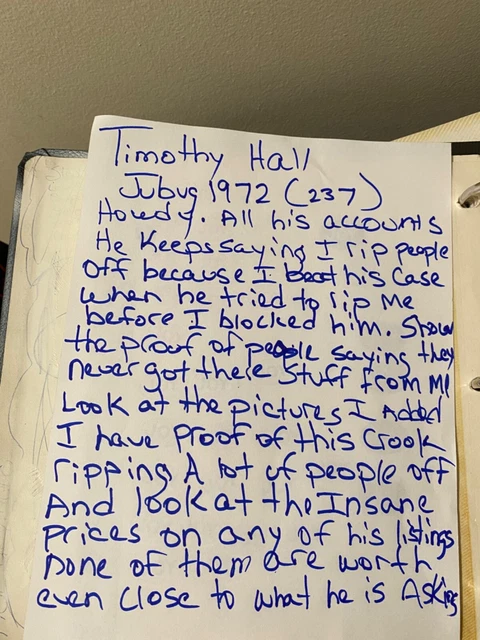 Timothy Hall
Jubug 1972 (237)
Howdy. All his accounts
He Keeps saying I rip people
off because I beat his case
when he tried to rip me
before I blocked him. Show
the proof of people saying they
never got there stuff from ME
Look at the pictures I Added
I have proof of this Crook
ripping A lot of people off
And look at the Insane
prices on any of his listings
None of them are worth
even close to what he is Asking